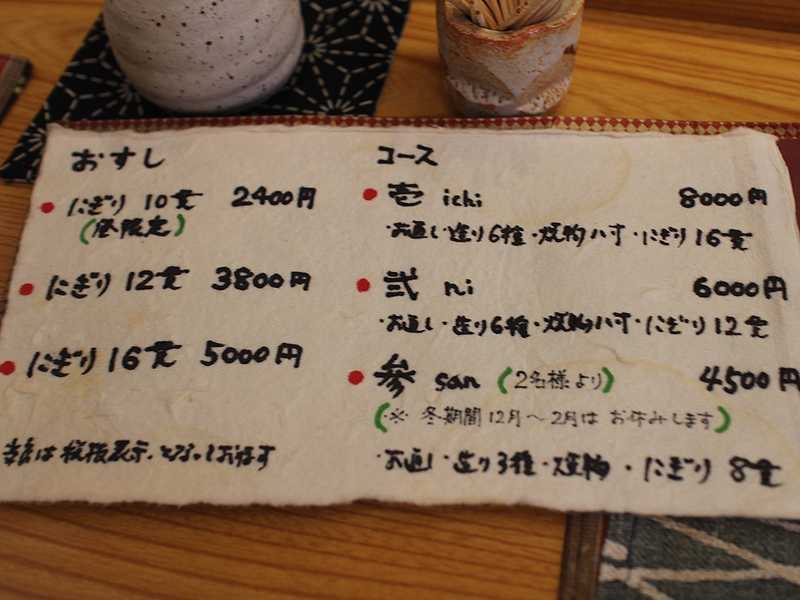 おすし
にぎり 10貫 2400円
(昼限定)
にぎり 12貫 3800円
にぎり 16貫 5000円
は税抜表示となっております
コース
壱 ichi 8000円
・お通し・造り6種・焼物八寸・にぎり16貫
弐 ni 6000円
・お通し・造り6種・焼物八寸・にぎり12貫
参 san (2名様より) 4500円
(※ 冬期間12月〜2月は お休みします)
・お通し・造り3種・焼物・にぎり 8貫